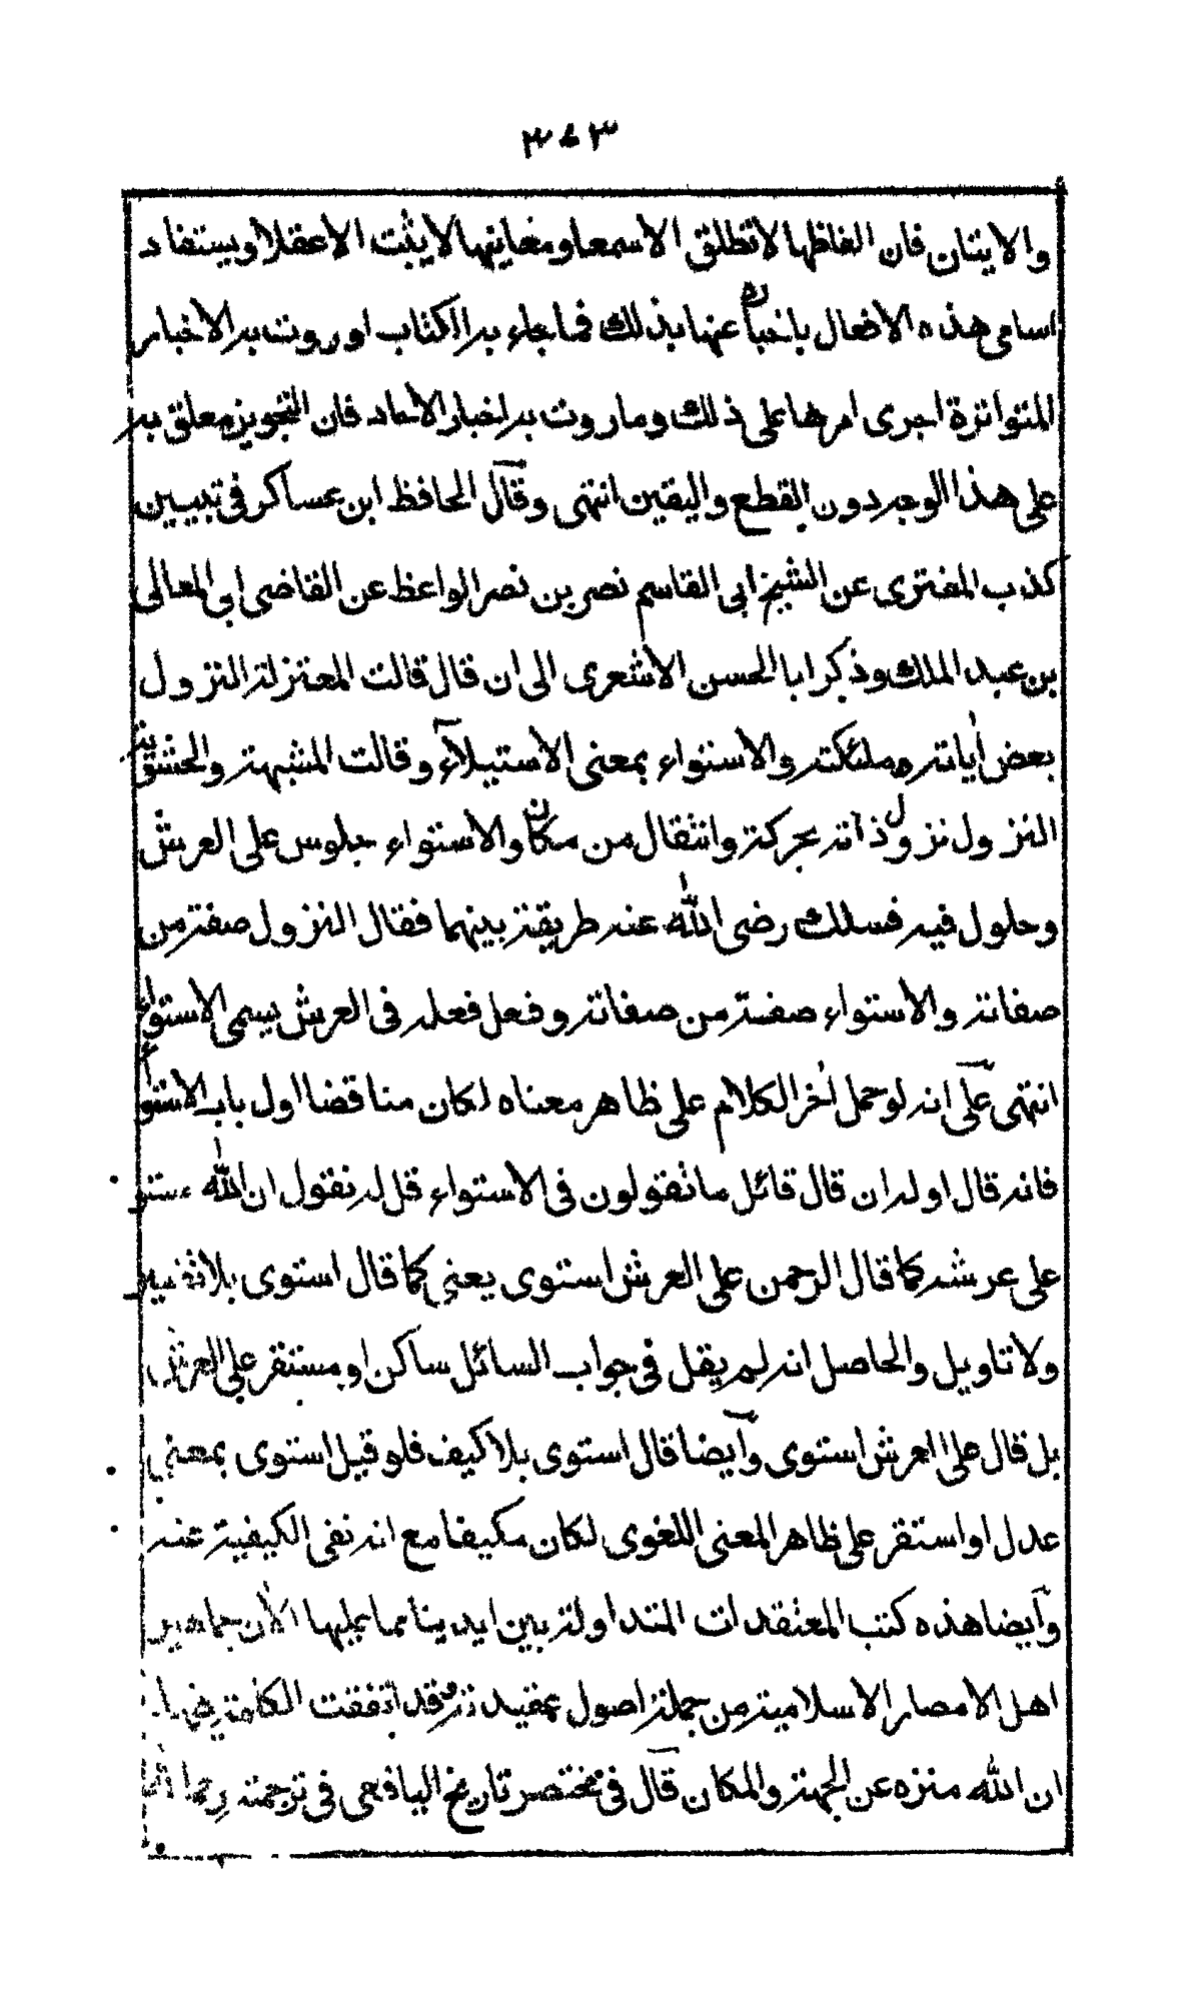 ٣٧٣
والايتان فان الفاظها لاتطلق الاسمعا ومعاينها لايثبت الاعقلا ويستفاد
اسامى هذه الافعال باخباره عنها بذلك فما جاء به الكتاب او رويت به الاخبار
المتواترة اجرى امرها على ذلك وما رويت به اخبار الاحاد فان التجويز معلق به
على هذا الوجه دون القطع واليقين انتهى وقال الحافظ ابن عساكر فى تبيين
كذب المفترى عن الشيخ ابى القاسم نصر بن نصر الواعظ عن القاضى ابى المعالى
بن عبد الملك وذكر ابا الحسن الاشعرى الى ان قال قالت المعتزلة النزول
بعض اياته وملئكته والاستواء بمعنى الاستيلاء وقالت المشبهة والحشوية
النزول نزول ذاته بحركة وانتقال من مكان والاستواء جلوس على العرش
وحلول فيه فسلك رضى الله عنه طريقة بينهما فقال النزول صفة من
صفاته والاستواء صفة من صفاته وفعل فعله فى العرش يسمى الاستواء
انتهى على انه لو حمل اخر الكلام على ظاهر معناه لكان مناقضا اول باب الاستواء
فانه قال اوله ان قال قائل ما تقولون فى الاستواء قل له نقول ان الله مستو
على عرشه كما قال الرحمن على العرش استوى يعنى كما قال استوى بلا تفسير
ولا تاويل والحاصل انه لم يقل فى جواب السائل ساكن او مستقر على العرش
بل قال على العرش استوى وايضا قال استوى بلا كيف فلو قيل استوى بمعنى
عدل او استقر على ظاهر المعنى اللغوى لكان مكيفا مع انه نفى الكيفية عنه
وايضا هذه كتب المعتقدات المتداولة بين ايدينا مما يمليها الان جماهير
اهل الامصار الاسلامية من جملة اصول عقيدته قد اتفقت الكلمة فيها
ان الله منزه عن الجهة والمكان قال فى مختصر تاريخ اليافعى فى ترجمة